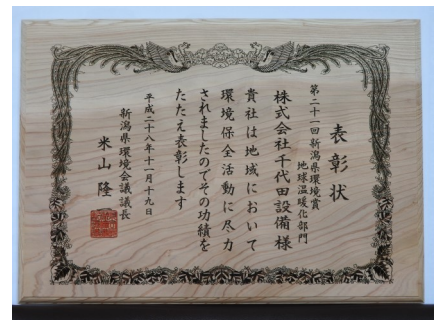 表彰状
第二十一回 新潟県環境賞
地球温暖化部門
株式会社千代田設備様
貴社は地域において
環境保全活動に尽力
されましたのでその功績を
たたえ表彰します
平成二十八年十一月十九日
新潟県環境会議議長
米山 隆